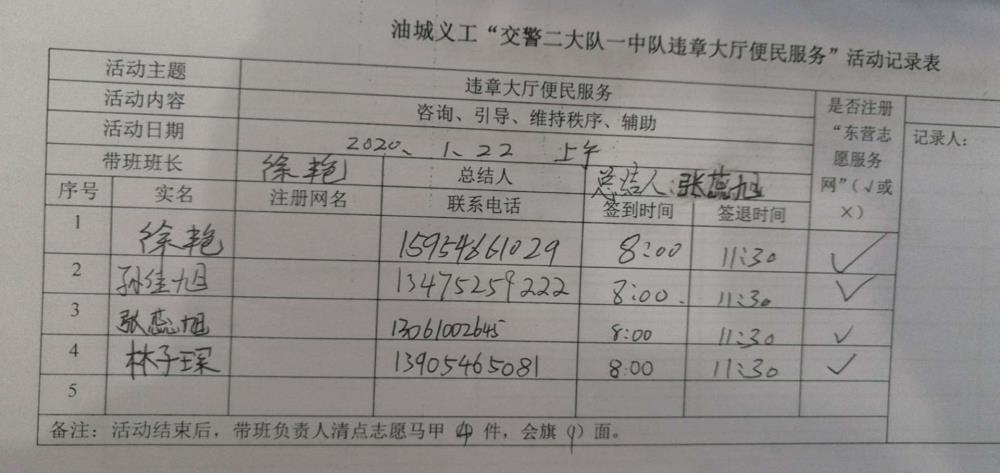 油城义工“交警二大队一中队违章大厅便民服务”活动记录表
活动主题 违章大厅便民服务
活动内容 咨询、引导、维持秩序、辅助
活动日期 2020、1、22 上午
带班班长 徐艳 总结人 总结人:张蕊旭
是否注册“东营志愿服务网”(√或×)
记录人:
序号 实名 注册网名 联系电话 签到时间 签退时间
1 徐艳 15954661029 8:00 11:30 √
2 孙佳旭 13475259222 8:00. 11:30 √
3 张蕊旭 13061002645 8:00 11:30 √
4 林子琛 13905465081 8:00 11:30 √
5
备注:活动结束后,带班负责人清点志愿马甲(4)件,会旗(1)面。